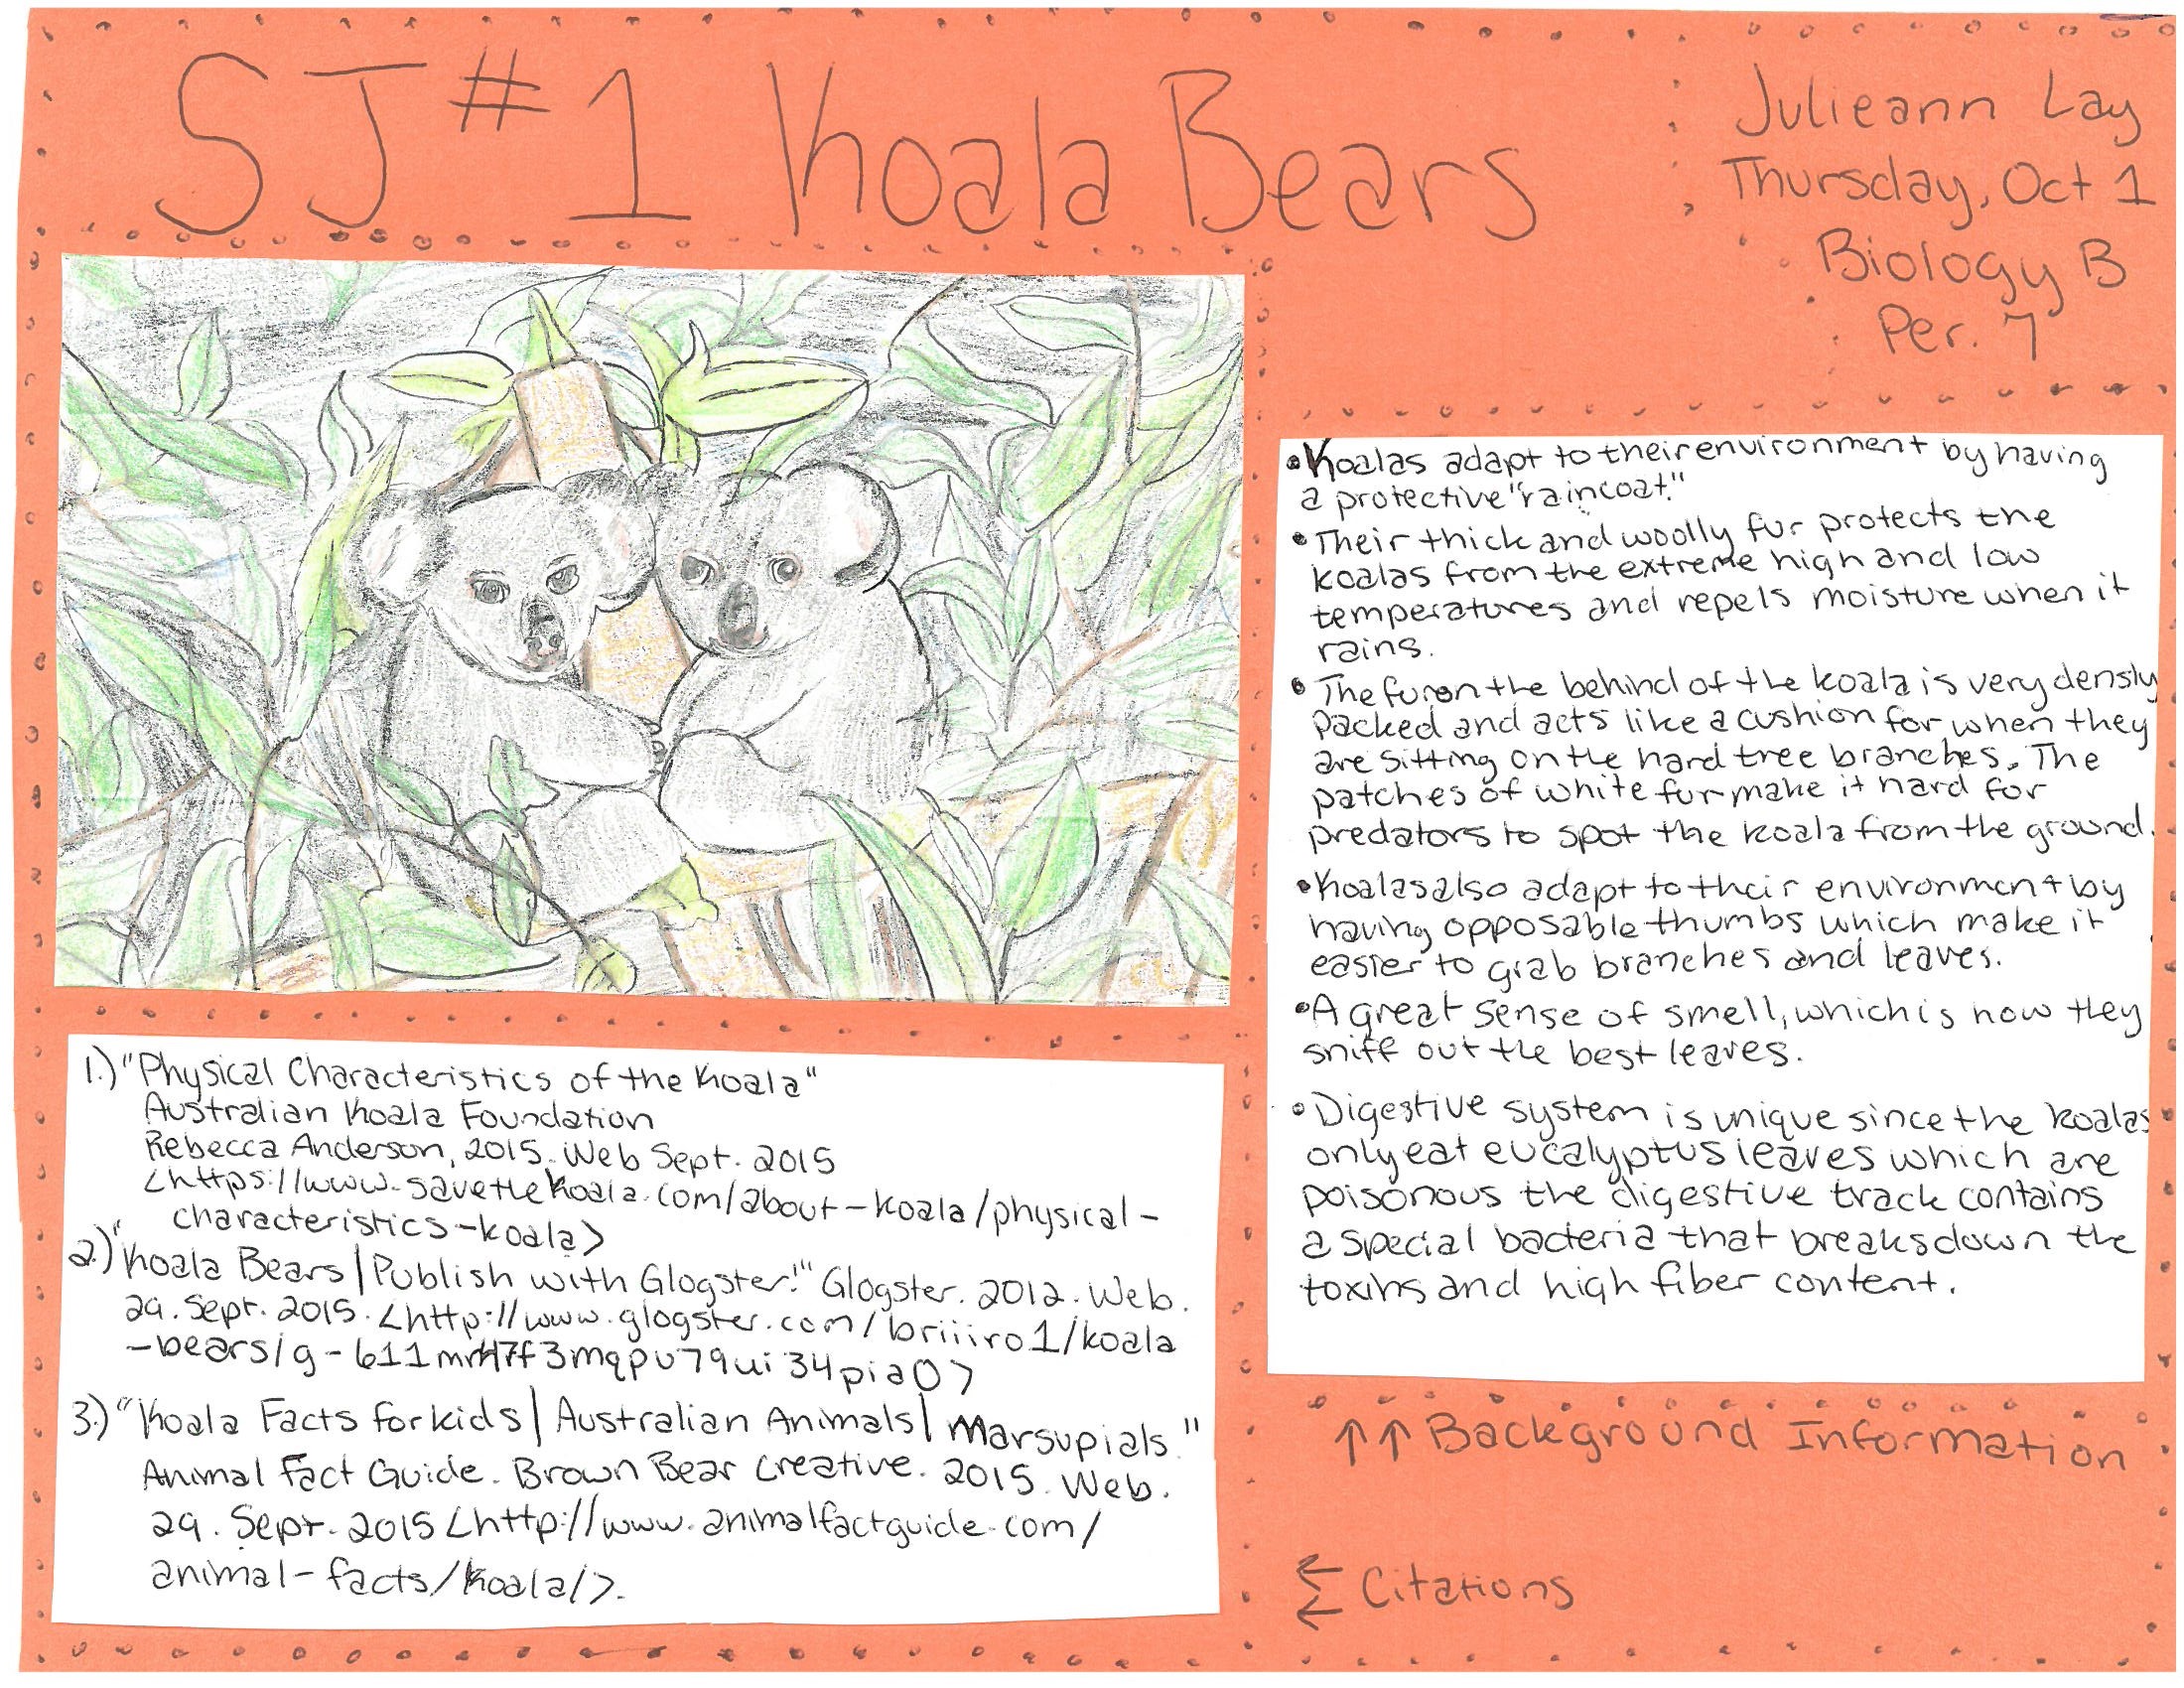 SJ #1 Koala Bears
Julieann Lay
Thursday, Oct 1
Biology B
Per. 7
•Koalas adapt to their environment by having
a protective "raincoat."
•Their thick and woolly fur protects the
koalas from the extreme high and low
temperatures and repels moisture when it
rains.
•The fur on the behind of the koala is very densly
packed and acts like a cushion for when they
are sitting on the hard tree branches. The
patches of white fur make it hard for
predators to spot the koala from the ground.
•Koalas also adapt to their environment by
having opposable thumbs which make it
easier to grab branches and leaves.
•A great sense of smell, which is how they
sniff out the best leaves.
•Digestive system is unique since the koalas
only eat eucalyptus leaves which are
poisonous the digestive track contains
a special bacteria that breaks down the
toxins and high fiber content.
↑↑ Background Information
1.) "Physical Characteristics of the Koala"
Australian Koala Foundation
Rebecca Anderson, 2015. Web Sept. 2015
<https://www.savethekoala.com/about-koala/physical-
characteristics-koala>
2.) "Koala Bears | Publish with Glogster!" Glogster. 2012. Web.
29. Sept. 2015. <http://www.glogster.com/briiiro1/koala
-bears/g-
3.) "Koala Facts for kids | Australian Animals | Marsupials."
Animal Fact Guide. Brown Bear Creative. 2015. Web.
29. Sept. 2015 <http://www.animalfactguide.com/
animal-facts/koala/>.
← Citations
←